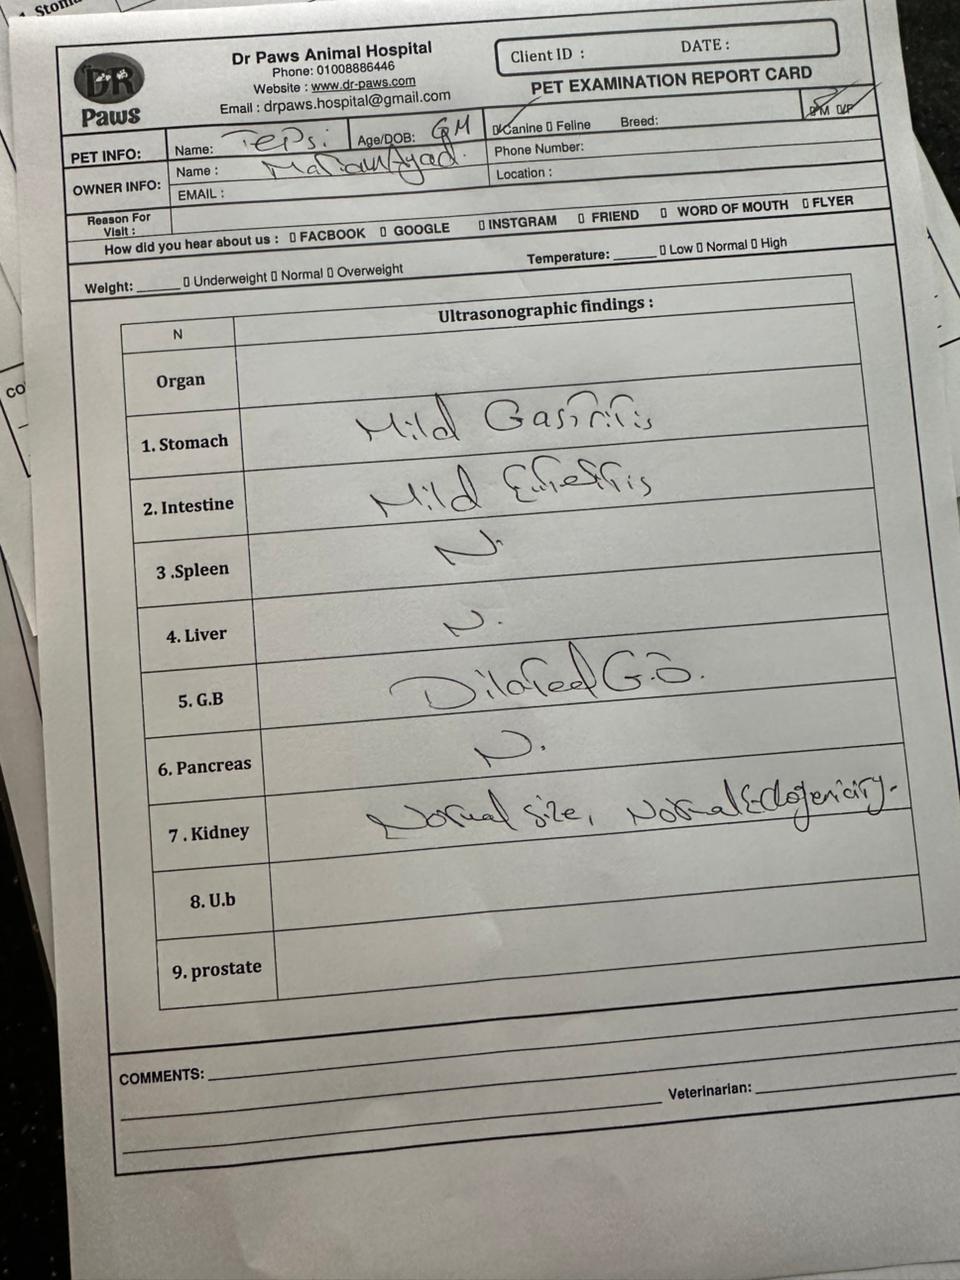 1. Stoma
DR
Paws
Dr Paws Animal Hospital
Phone: 01008886446
Website : www.dr-paws.com
Email : drpaws.hospital@gmail.com
Client ID : DATE :
PET EXAMINATION REPORT CARD
PET INFO: Name: Age/DOB: Canine Feline Breed: M F
OWNER INFO: Name : Phone Number:
EMAIL : Location :
Reason For
Visit :
How did you hear about us : FACBOOK GOOGLE INSTGRAM FRIEND WORD OF MOUTH FLYER
Weight: ______ Underweight Normal Overweight Temperature: ______ Low Normal High
N Ultrasonographic findings :
Organ
1. Stomach Mild Gastritis
2. Intestine Mild Enteritis
3 .Spleen N.
4. Liver N.
5. G.B Dilated G.B.
6. Pancreas N.
7 . Kidney Normal size, Normal Echogenicity.
8. U.b
9. prostate
COMMENTS:
Veterinarian:
CO